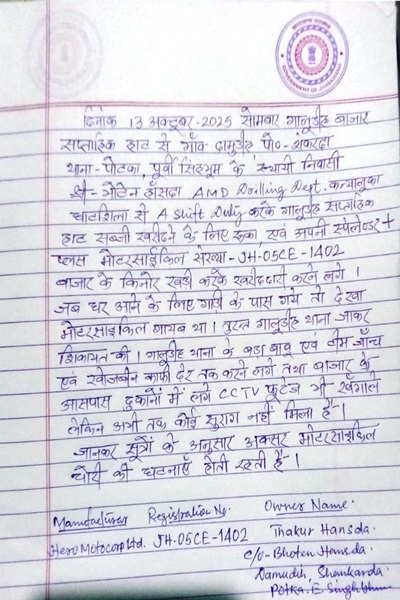 दिनांक 13 अक्टूबर-2025 सोमवार गालुडीह बाजार
सप्ताहिक हाट से गाँव दामुडीह पो०-शंकरदा
थाना-पोटका, पूर्वी सिंहभूम के स्थायी निवासी
श्री-भोटेन हाँसदा AMD Drilling Dept. कन्यालुका
घाटशिला से A Shift Duty करके गालुडीह सप्ताहिक
हाट सब्जी खरीदने के लिए रूका, एवं अपनी स्पेलेन्डर +
प्लस मोटरसाइकिल संख्या-JH-05CE-1402
बाजार के किनारे खड़ी करके खरीददारी करने लगे।
जब घर आने के लिए गाड़ी के पास गये तो देखा
मोटरसाइकिल गायब था। तुरन्त गालुडीह थाना जाकर
शिकायत की। गालुडीह थाना के बड़ा बाबू एवं टीम जाँच
एवं खोजबीन काफी देर तक करने लगे तथा बाजार के
आसपास दुकानों में लगे CCTV फुटेज भी खंगाले
लेकिन अभी तक कोई सुराग नहीं मिला है-।
जानकर सूत्रों के अनुसार अक्सर मोटरसाइकिल
चोरी की घटनाएँ होती रहती है-।
Manufacturer Registration No. Owner Name.
Hero Motocorp Ltd. JH-05CE-1402 Thakur Hansda.
C/O-Bhoten Hansda.
Damudih, Shankarda.
Potka, E. Singhbhum